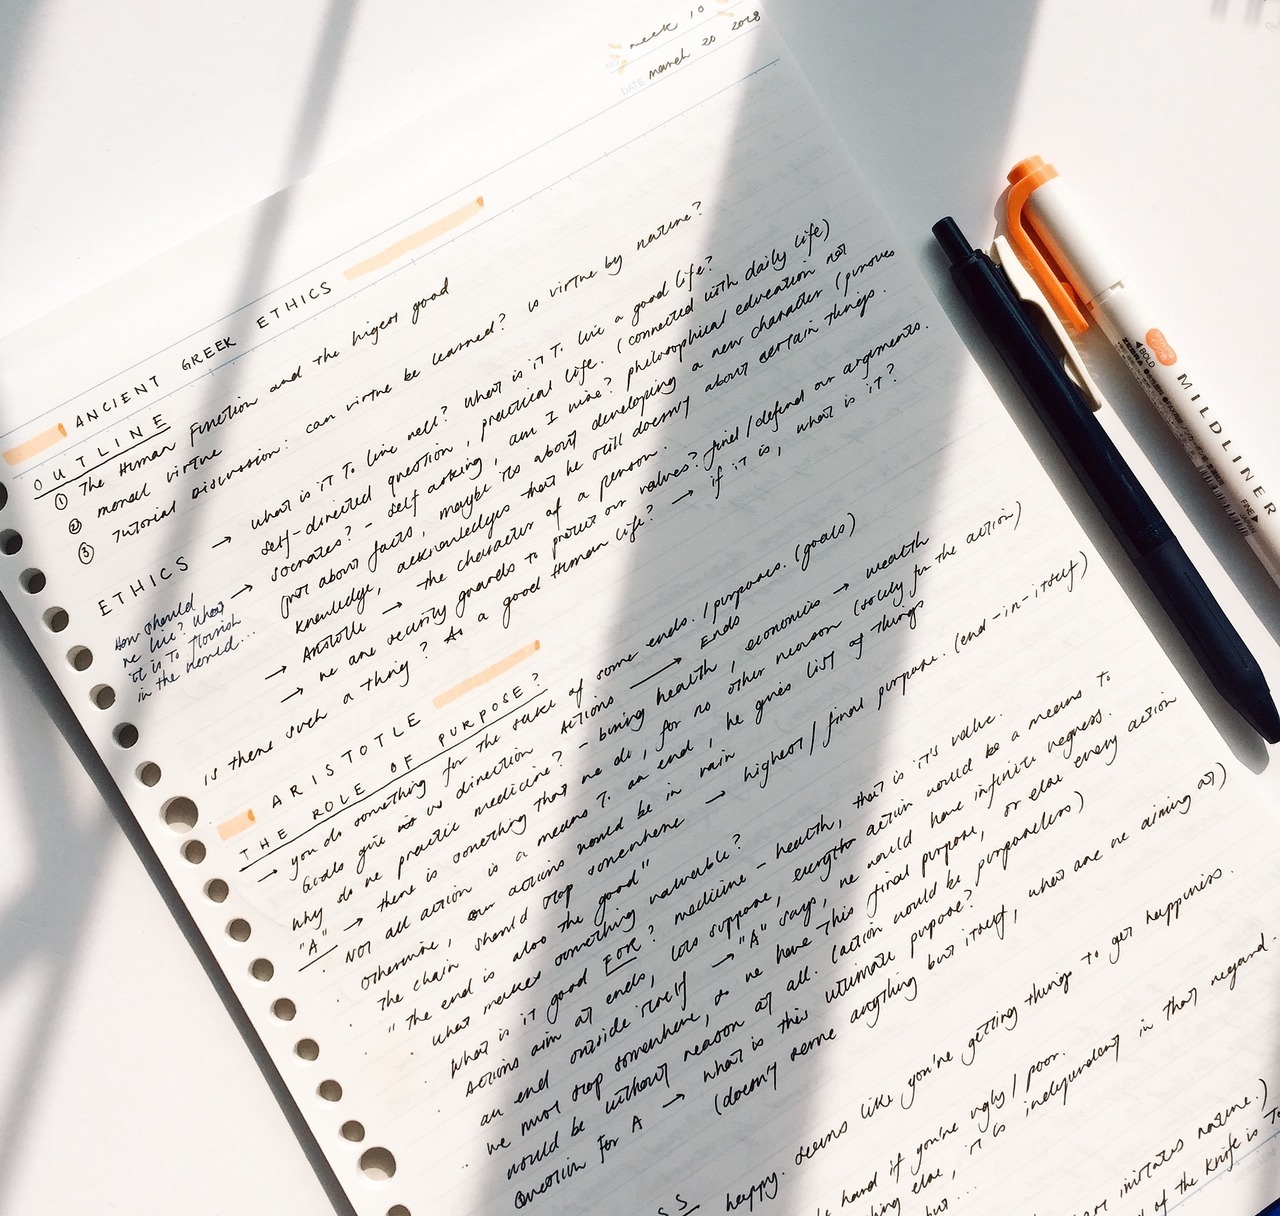 week 10
NO.
DATE march 20 2018
ANCIENT GREEK ETHICS
OUTLINE
① The Human Function and the higest good
② moral virtue
③ Tutorial Discussion: can virtue be learned? is virtue by nature?
ETHICS → what is it to live well? what is it to live a good life?
How should we live? What it is to flourish in the world...
→ self-directed question, practical life. (connected with daily life)
Socrates? - self asking, am I wise? philosophical education not
(not about facts, maybe its about developing a new character (proves
knowledge, acknowledges that he still doesn't about certain things.
→ Aristotle → the character of a person.
→ we are security guards to protect our values? find/defend our arguments.
is there such a thing? As a good human life? → if it is, what is it?
ARISTOTLE
THE ROLE OF PURPOSE?
→ you do something for the sake of some ends. / purposes. (goals)
Goals give us direction Actions → Ends
why do we practice medicine? - bring health, economics → wealth
"A" → there is something that we do, for no other reason (solely for the action)
Not all action is a means to an end, he gives list of things
otherwise, our actions would be in vain
the chain should stop somewhere → highest / final purpose. (end-in-itself)
" the end is also the good"
what makes something valuable?
what is it good FOR? medicine - health, that is it's value.
Actions aim at ends, lets suppose, action would be a means to
an end outside itself → "A" says, we would have infinite regress.
we must stop somewhere, so we have this final purpose, or else every action
would be without reason at all. (action would be purposeless)
Question for A → what is this ultimate purpose?
(doesn't serve anything but itself, what are we aiming at)
happy. seems like you're getting things to get happiness.
hard if you're ugly / poor.
else, it is independent in that regard.
but...
imitates nature.)
of the knife is to
MILDLINER
BOLD
FINE
ZEBRA